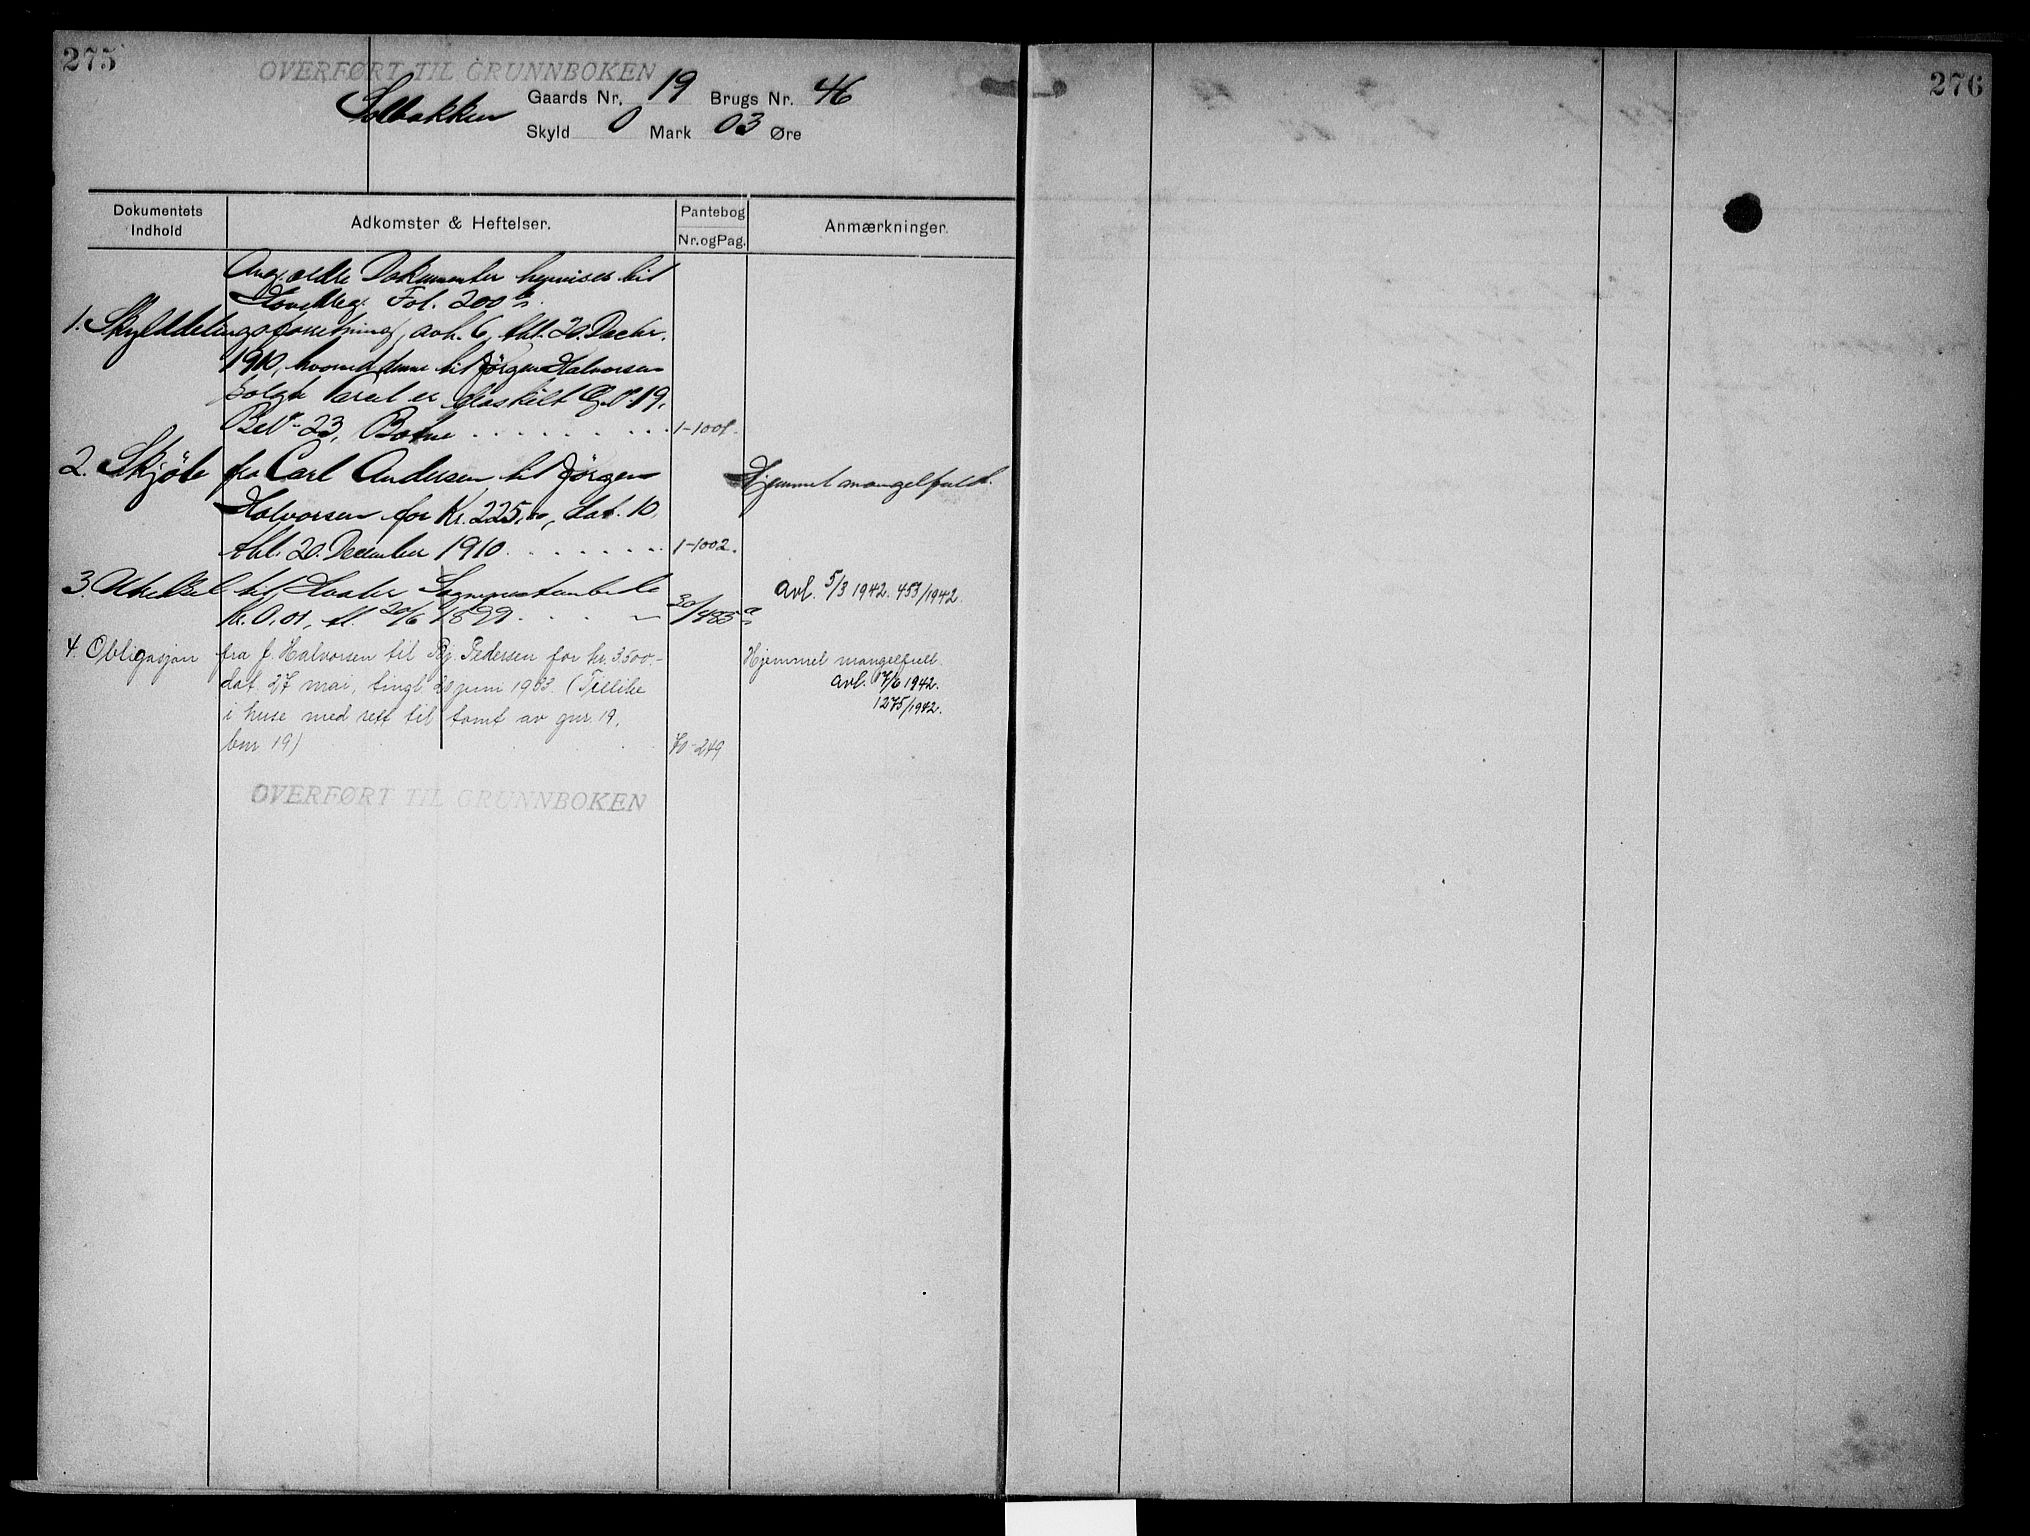 275
276
OVERFØRT TIL GRUNNBOKEN
Solbakken
Gaards Nr. 19 Brugs Nr. 46
Skyld 0 Mark 03 Øre
Dokumentets Indhold
Adkomster & Heftelser.
Pantebog
Nr. og Pag.
Anmærkninger.
Ang. ældre Dokumenter henvises til
Fol. 200
1. Skylddelingsforretning, avh. 6, thl. 20. Decbr.
1910, hvorved denne til Jörgen Halvorsen
solgte Parcel er fraskilt G. No 19,
B. No 23, Botne . . . . . . . . . 1-1001.
2. Skjöte fra Carl Andersen til Jörgen
Hjemmel mangelfuld.
Halvorsen for Kr. 225,00, dat. 10,
thl. 20. December 1910. . . . . . . 1-1002.
3. til
avl. 5/3 1942. 453/1942.
Kr. 0,01, tl. 20/6 1899 . . . 30/485
4. Obligasjon fra J. Halvorsen til Pedersen for kr. 3500,-
Hjemmel mangelfull.
dat. 27 mai, tingl. 20 juni 1933. (Tillike
avl. 17/6 1942.
i huse med rett til tomt av gnr. 19,
1275/1942.
bnr 19) 70-249
OVERFØRT TIL GRUNNBOKEN